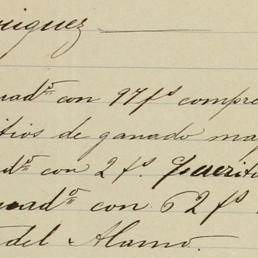 riguez
uadº con 97 fs compre
itios de ganado may
dº con 2 fs. Escritu
uadº con 62 fs.
del Alamo.